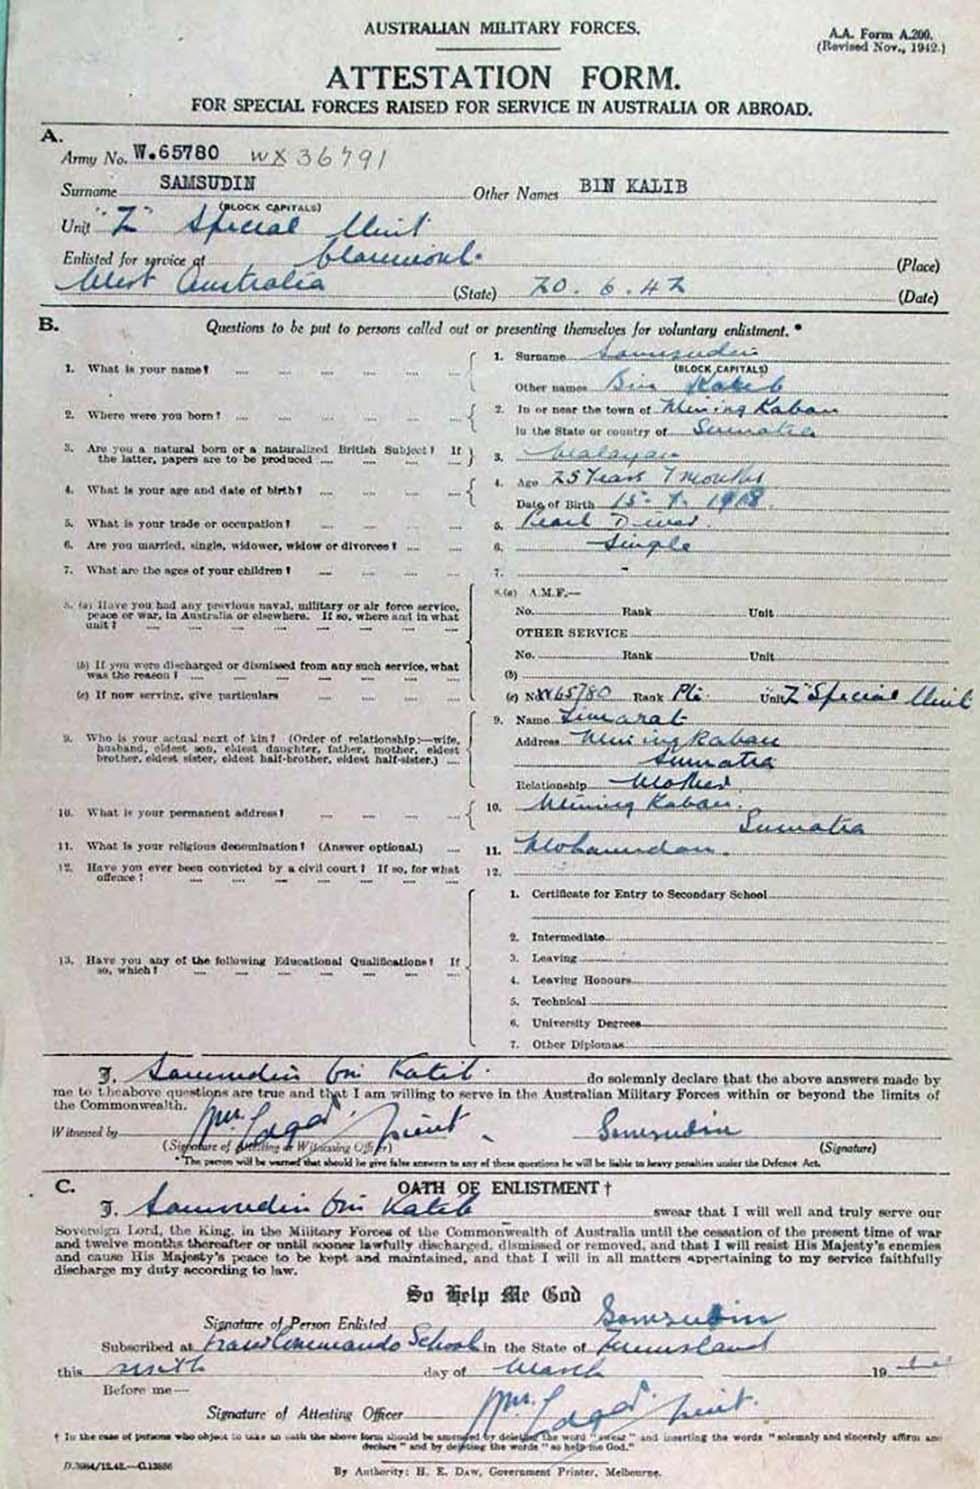 AUSTRALIAN MILITARY FORCES.
A.A. Form A.200.
(Revised Nov., 1942.)
ATTESTATION FORM.
FOR SPECIAL FORCES RAISED FOR SERVICE IN AUSTRALIA OR ABROAD.
A.
Army No. W.65780 WX 36791
Surname SAMSUDIN Other Names BIN KALIB
(BLOCK CAPITALS)
Unit "Z" Special Unit
Enlisted for service at Claremont. (Place)
West Australia (State) 20.6.42 (Date)
B. Questions to be put to persons called out or presenting themselves for voluntary enlistment. *
1. What is your name? 1. Surname Samsudin
(BLOCK CAPITALS)
Other names Bin Kateb
2. Where were you born? 2. In or near the town of Mining Kabau
In the State or country of Sumatra
3. Are you a natural born or a naturalized British Subject? If the latter, papers are to be produced 3. Malayan
4. What is your age and date of birth? 4. Age 25 Years 7 months
Date of Birth 15. 7. 1918.
5. What is your trade or occupation? 5. Pearl Diver.
6. Are you married, single, widower, widow or divorcee? 6. Single
7. What are the ages of your children? 7. -
8. (a) Have you had any previous naval, military or air force service, peace or war, in Australia or elsewhere. If so, where and in what unit? 8.(a) A.M.F.—
No. Rank Unit
OTHER SERVICE
No. Rank Unit
(b) If you were discharged or dismissed from any such service, what was the reason? (b)
(c) If now serving, give particulars (c) No. W65780 Rank Pte. Unit Z Special Unit
9. Who is your actual next of kin? (Order of relationship:—wife, husband, eldest son, eldest daughter, father, mother, eldest brother, eldest sister, eldest half-brother, eldest half-sister.) 9. Name
Address Mining Kabau
Sumatra
Relationship Mother
10. What is your permanent address? 10. Mining Kabau.
Sumatra
11. What is your religious denomination? (Answer optional.) 11. Mohamedan.
12. Have you ever been convicted by a civil court? If so, for what offence? 12.
13. Have you any of the following Educational Qualifications? If so, which?
1. Certificate for Entry to Secondary School
2. Intermediate
3. Leaving
4. Leaving Honours
5. Technical
6. University Degrees
7. Other Diplomas
I, Samsudin bin Kateb. do solemnly declare that the above answers made by
me to the above questions are true and that I am willing to serve in the Australian Military Forces within or beyond the limits of
the Commonwealth.
Witnessed by Wm. Edgar Lieut. Samsudin
(Signature of Attesting or Witnessing Officer) (Signature)
* The person will be warned that should he give false answers to any of these questions he will be liable to heavy penalties under the Defence Act.
C. OATH OF ENLISTMENT †
I, Samsudin bin Kateb swear that I will well and truly serve our
Sovereign Lord, the King, in the Military Forces of the Commonwealth of Australia until the cessation of the present time of war
and twelve months thereafter or until sooner lawfully discharged, dismissed or removed, and that I will resist His Majesty's enemies
and cause His Majesty's peace to be kept and maintained, and that I will in all matters appertaining to my service faithfully
discharge my duty according to law.
So Help Me God
Signature of Person Enlisted Samsudin
Subscribed at Commando School in the State of Queensland
this sixth day of March 19
Before me—
Signature of Attesting Officer Wm. Edgar Lieut.
† In the case of persons who object to take an oath the above form should be amended by deleting the word "swear" and inserting the words "solemnly and sincerely affirm and
declare" and by deleting the words "so help me God."
By Authority: H. E. DAW, Government Printer, Melbourne.